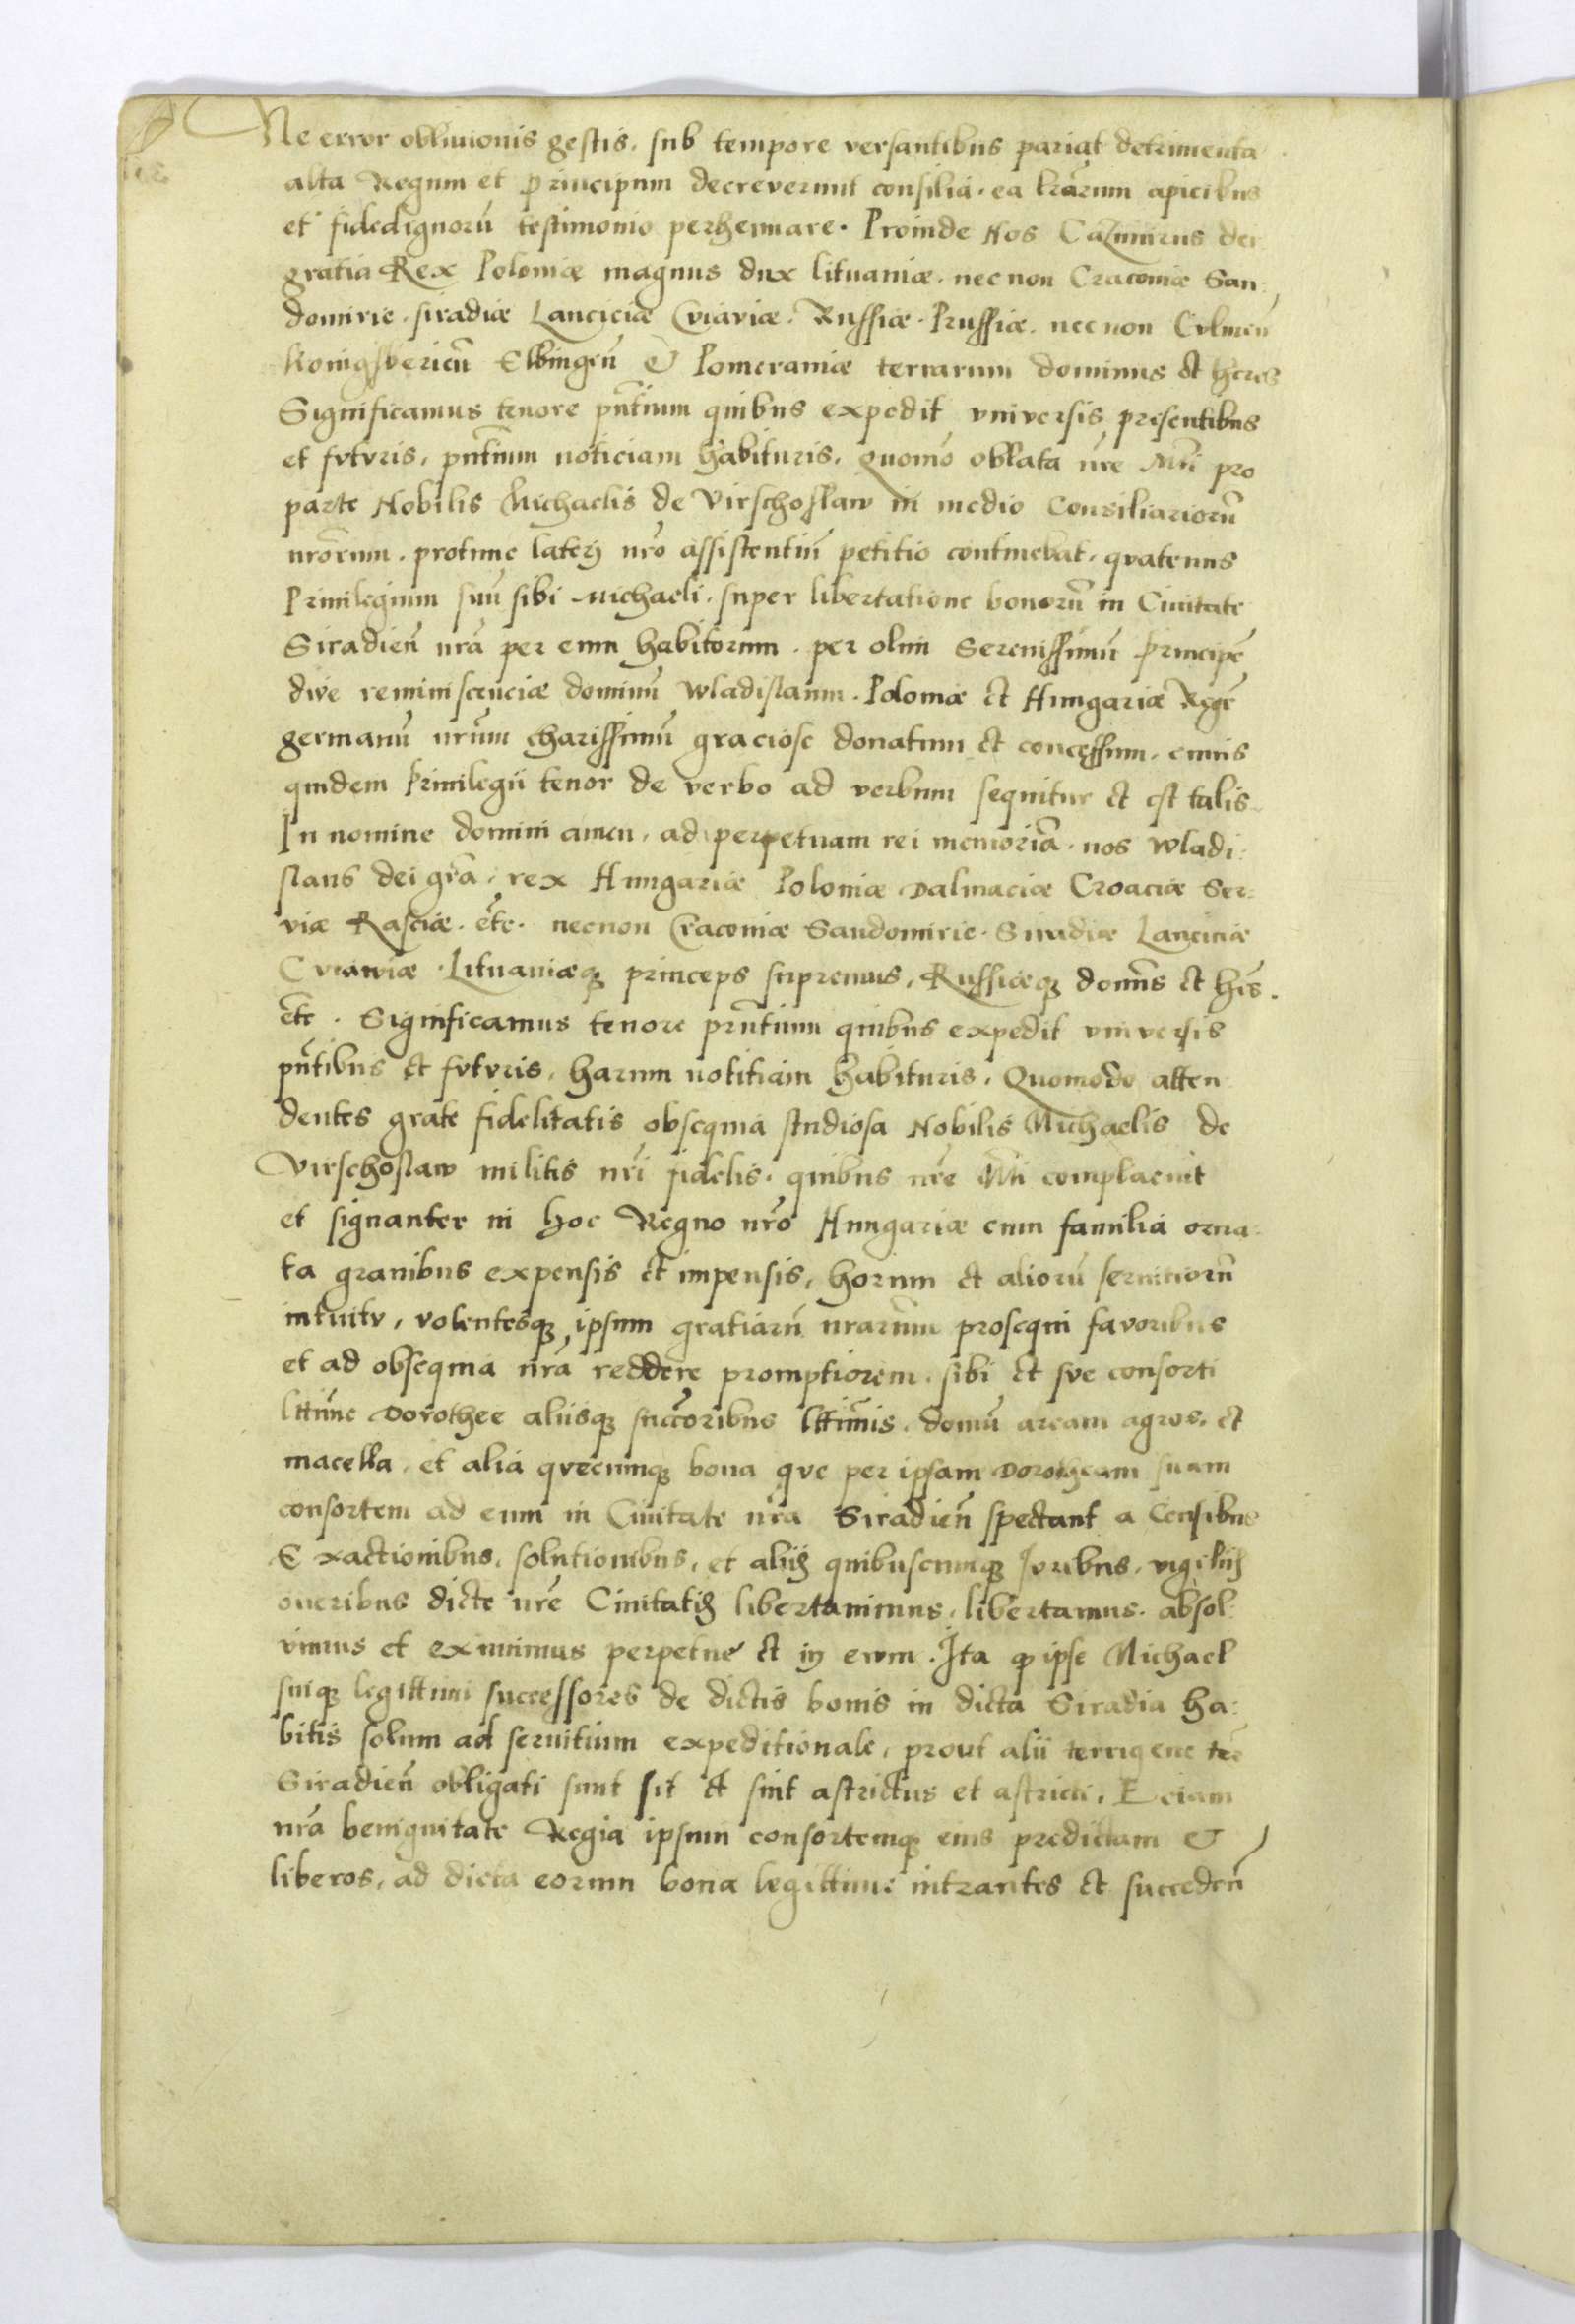 Ne error oblivionis gestis. sub tempore versantibus pariat detrimenta
alta Regum et Principum decreverunt consilia. ea lr̃arum apicibus
et fidedignorū testimonio perhennare. Proinde Nos Cazimirus dei
gratia Rex Poloniæ magnus dux lituaniæ. nec non Cracoviæ San:
domirie. siradiæ Lanciciæ Cviaviæ. Russiæ. Prussiæ. nec non Culmen̄
Konigsbericn̄ Elbingen̄ & Pomeraniæ terrarum dominus et heres
Significamus tenore pn̄tium quibus expedit vniversis presentibus
et fvtvris, pn̄tium noticiam habituris. quomō oblata nr̄e Mti pro
parte Nobilis Michaelis de Virschoslaw in medio Consiliariorū
nrōrum. protunc laterj nr̄o assistentiū petitio continebat. quatenus
Priuilegium suū sibi Michaeli. super libertatione bonorū in Ciuitate
Siradien̄ nr̄a per eum habitorum. per olim Serenissimū Principē
dive reminiscenciæ dominū Wladislaum. Poloniæ et Hungariæ Regē
germanū nr̄um charissimū graciose donatum et concessum. cuius
quidem Priuilegii tenor de verbo ad verbum sequitur et est talis.
In nomine domini amen. ad perpetuam rei memoriā. nos Wladi:
slaus dei gr̄a. rex Hungariæ Poloniæ Dalmaciæ Croaciæ Ser:
viæ Rasciæ. etc̄. necnon Cracoviæ Sandomirie. Siradiæ Lanciciæ
Cviaviæ. Lituaniæq₃ princeps supremus, Russiæq₃ domn̄s et hēs.
etc̄. Significamus tenore prn̄tium quibus expedit vniversis
pn̄tibus et fvtvris, harum notitiam habituris. Quomodo atten
dentes grate fidelitatis obsequia studiosa Nobilis Michaelis de
Virschoslaw militis nr̄i fidelis. quibus nr̄e Mti complacuit
et signanter in hoc Regno nr̄o Hungariæ cum familia orna:
ta grauibus expensis et impensis, horum et aliorū seruitiorū
intuitv, volentesq₃ ipsum gratiarū nrarūm prosequi favoribus
et ad obsequia nr̄a reddere promptiorem. sibi et sve consorti
lttim̄e Dorothee aliisq₃ succ̄oribus lttim̄is. domū aream agros. et
macella, et alia qvecumq₃ bona qve per ipsam Dorotheam suam
consortem ad eum in Ciuitate nr̄a Siradien̄ spectant a Censibus
Exactionibus, solutionibus, et aliis quibuscumq₃ Jvribus, vigiliis
oneribus dicte nr̄e Ciuitatis libertauimus, libertamus. absol:
vimus et eximimus perpetue et in evvm. Ita qꝫ ipse Michael
suiq₃ legittimi successores de dictis bonis in dicta Siradia ha:
bitis solum ad seruitium expeditionale, prout alii terrigene ter̄
Siradien̄ obligati sunt sit et sint astrictus et astricti. Eciam
nr̄a benignitate Regia ipsum consortemq₃ eius predictam &
liberos, ad dicta eorum bona legittime intrantes et succeden̄